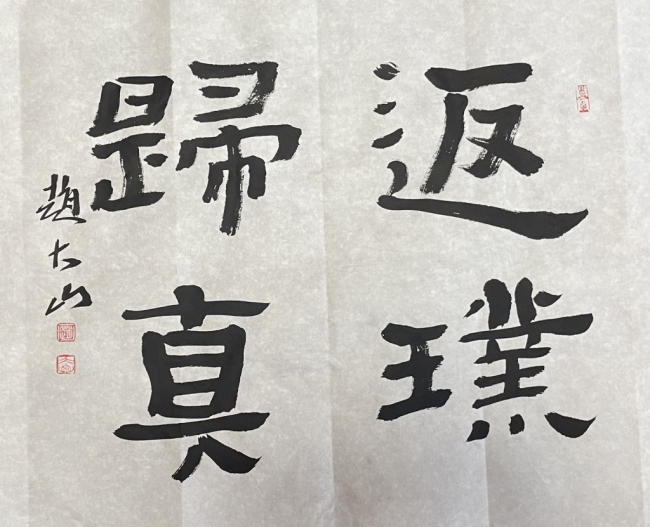 返璞
歸真
趙大山